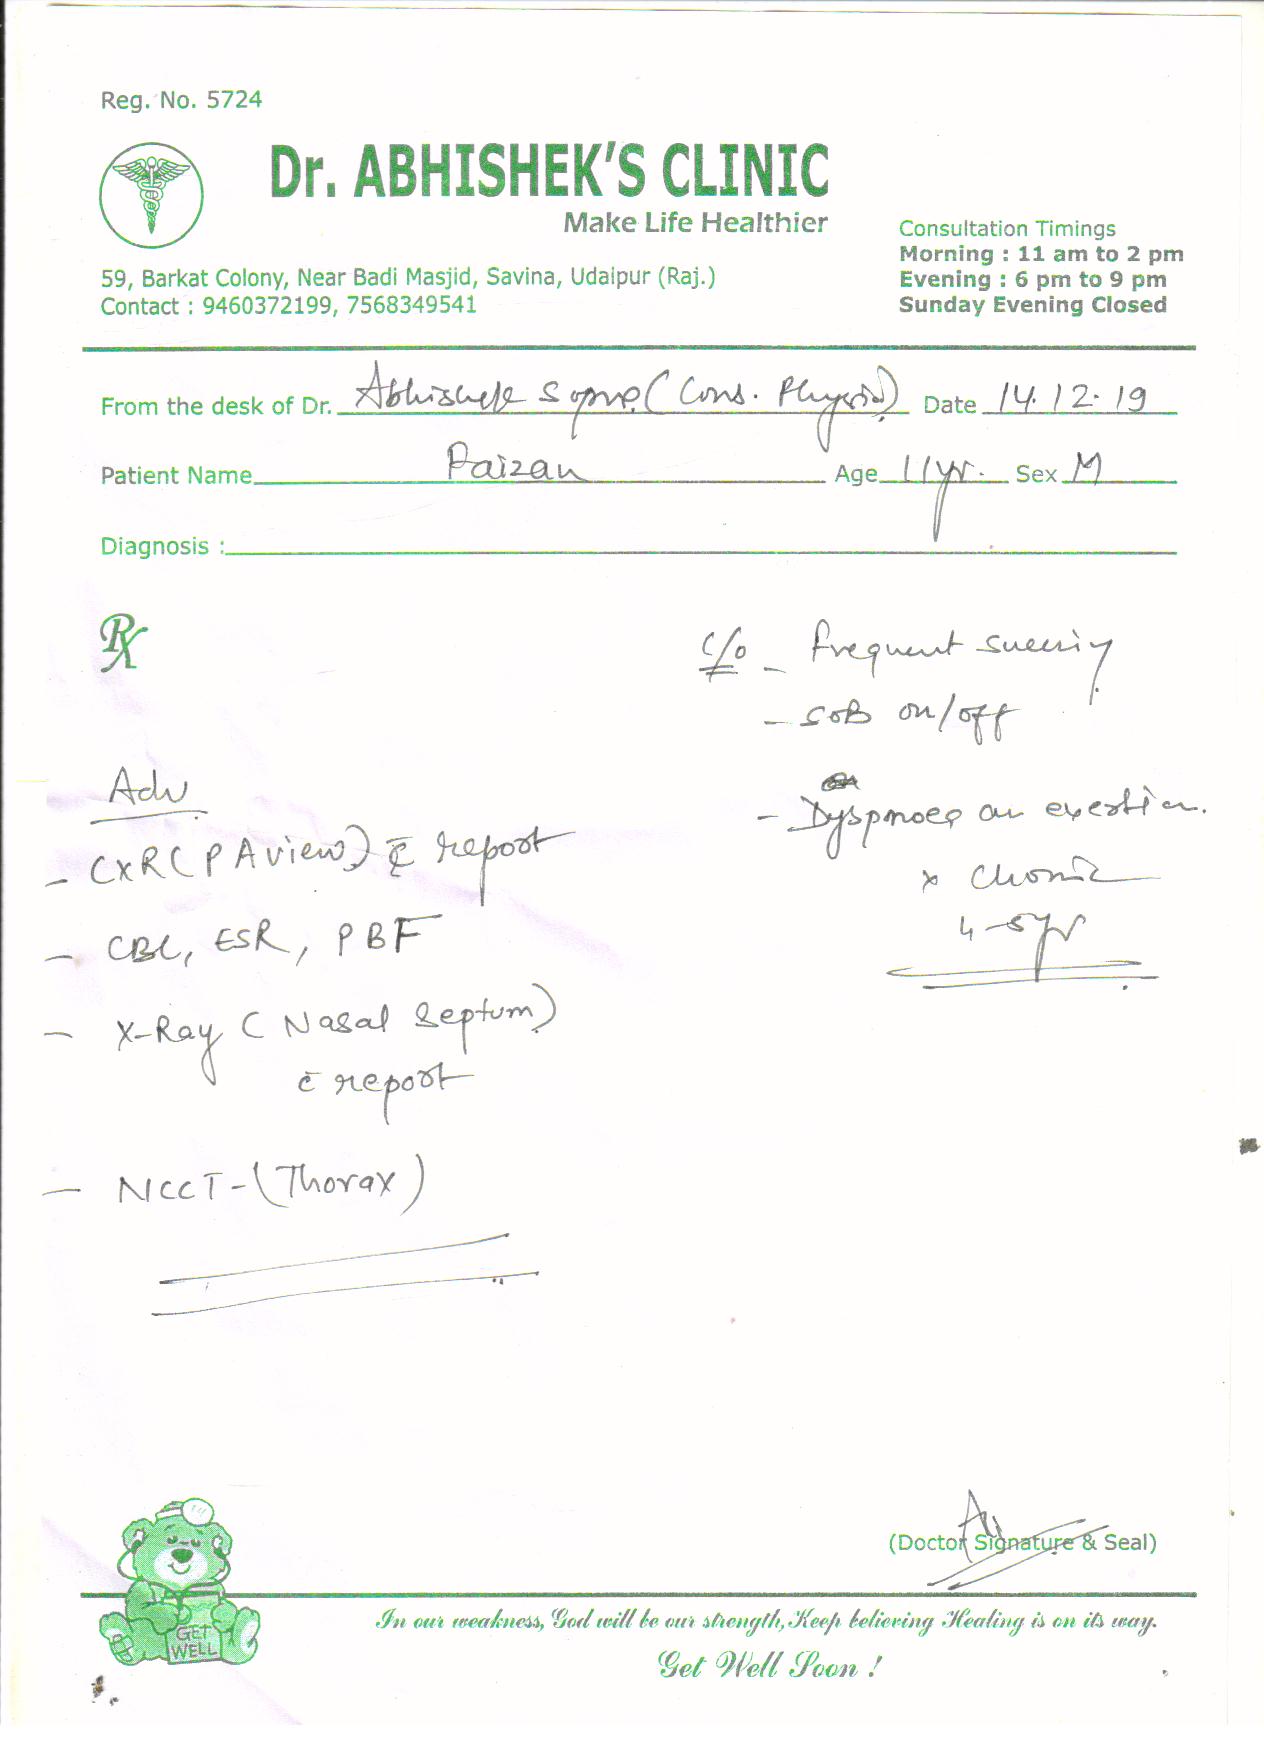 Reg. No. 5724
Dr. ABHISHEK'S CLINIC
Make Life Healthier
59, Barkat Colony, Near Badi Masjid, Savina, Udaipur (Raj.)
Contact : 9460372199, 7568349541
Consultation Timings
Morning : 11 am to 2 pm
Evening : 6 pm to 9 pm
Sunday Evening Closed
From the desk of Dr. Abhishek (Cons. Physician) Date 14.12.19
Patient Name Faizan Age 11yr. Sex M
Diagnosis :
Rx
c/o - Frequent sneezing
- SOB on/off
- Dyspnoea on exertion.
x chronic
4-5yr
Adv
- CXR (PA view) c̄ report
- CBC, ESR, PBF
- X-Ray (Nasal Septum)
c̄ report
- NCCT-(Thorax)
(Doctor Signature & Seal)
GET
WELL
In our weakness, God will be our strength, Keep believing Healing is on its way.
Get Well Soon !